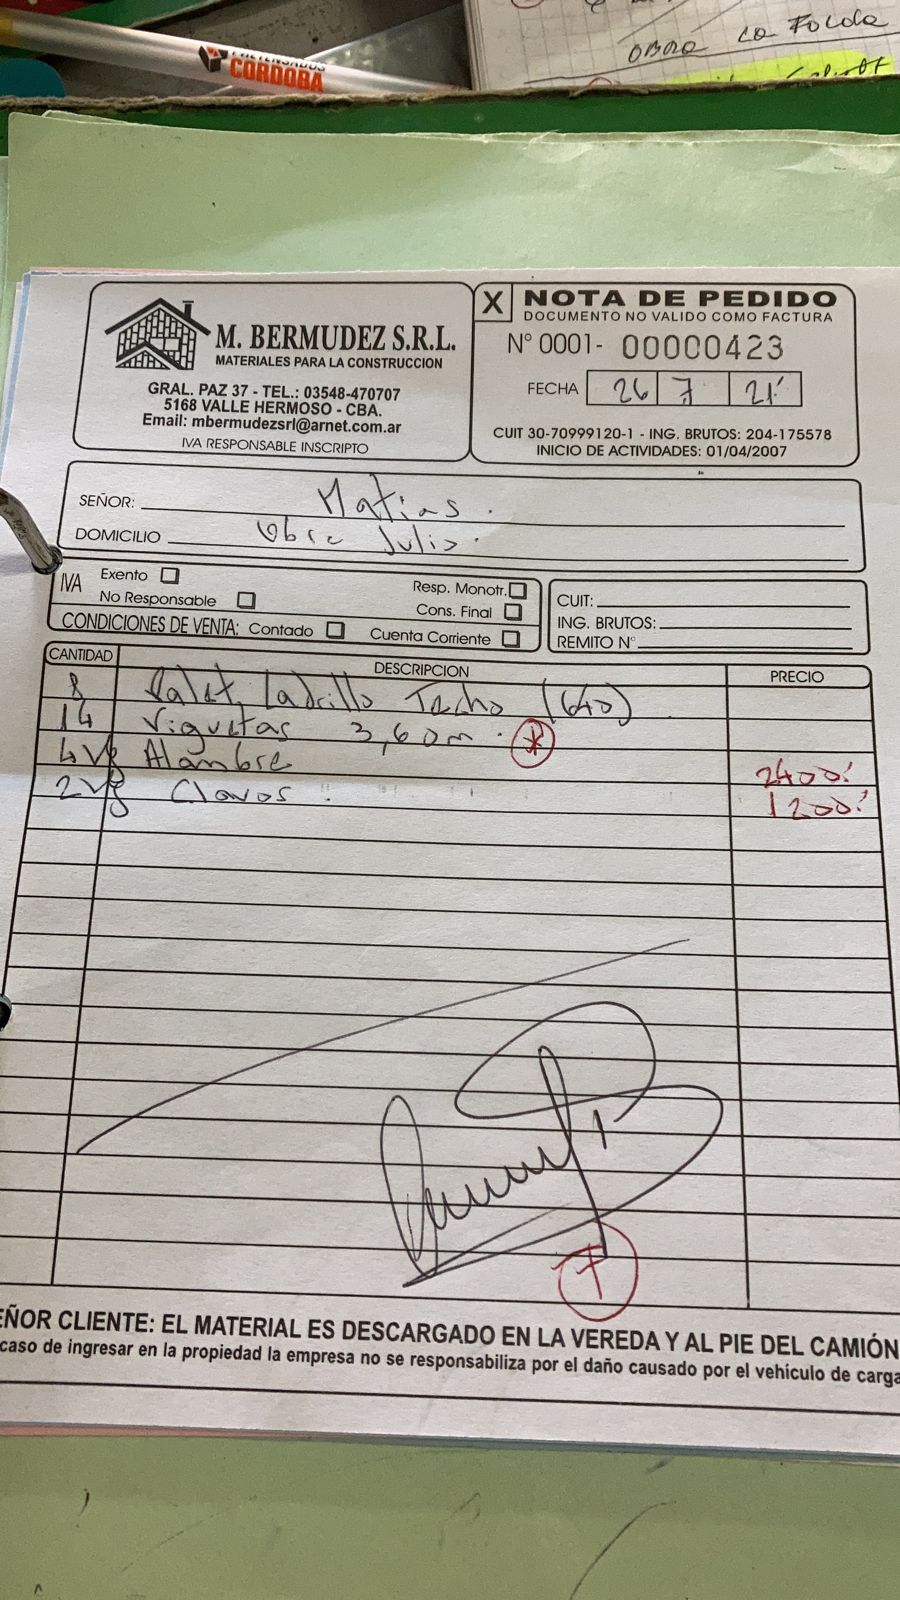 PRETENSADOS
CORDOBA
OBRA LA FALDA
M. BERMUDEZ S.R.L.
MATERIALES PARA LA CONSTRUCCION
GRAL. PAZ 37 - TEL.: 03548-470707
5168 VALLE HERMOSO - CBA.
Email: mbermudezsrl@arnet.com.ar
IVA RESPONSABLE INSCRIPTO
X NOTA DE PEDIDO
DOCUMENTO NO VALIDO COMO FACTURA
N° 0001- 00000423
FECHA 26 7 21
CUIT 30-70999120-1 - ING. BRUTOS: 204-175578
INICIO DE ACTIVIDADES: 01/04/2007
SEÑOR: Matias.
DOMICILIO Obra Julio.
IVA Exento
No Responsable
Resp. Monotr.
Cons. Final
CONDICIONES DE VENTA: Contado Cuenta Corriente
CUIT:
ING. BRUTOS:
REMITO N°
CANTIDAD DESCRIPCION PRECIO
8 Palet Ladrillo Techo (640)
14 Viguetas 3,60m. *
4 Kg Alambre 2400.
2 Kg Clavos. 1200.
SEÑOR CLIENTE: EL MATERIAL ES DESCARGADO EN LA VEREDA Y AL PIE DEL CAMIÓN
caso de ingresar en la propiedad la empresa no se responsabiliza por el daño causado por el vehículo de carga